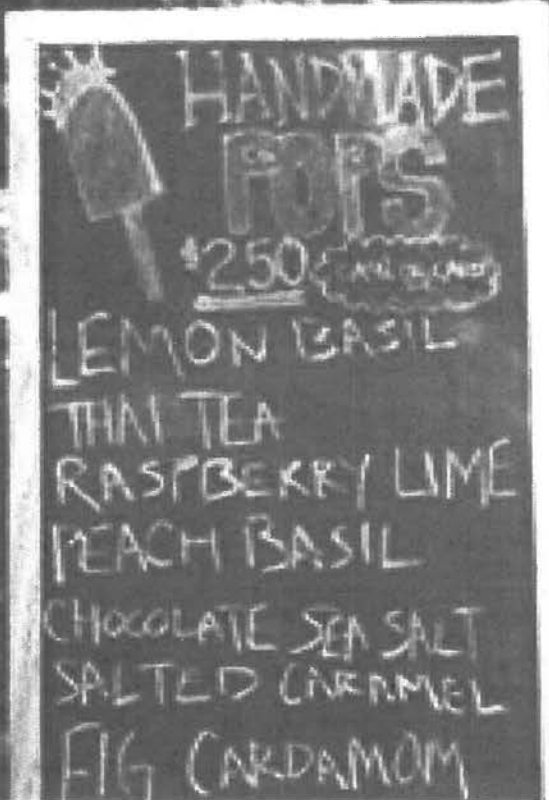 HANDMADE
POPS
$2.50 CASH OR CARD
LEMON BASIL
THAI TEA
RASPBERRY LIME
PEACH BASIL
CHOCOLATE SEA SALT
SALTED CARAMEL
FIG CARDAMOM